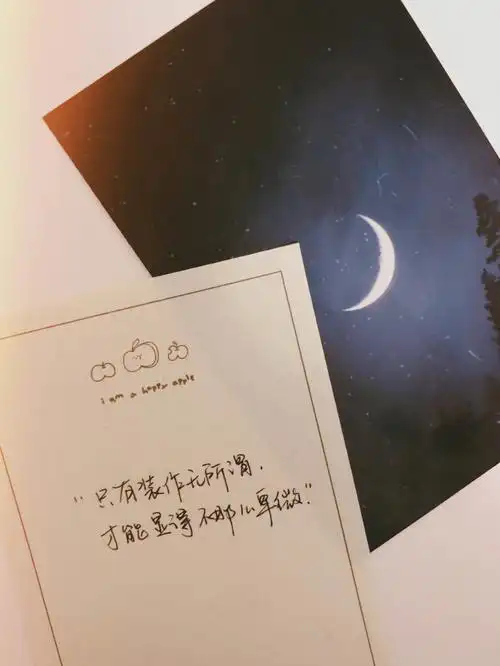 i am a happy apple
“只有装作无所谓,
才能显得不那么卑微.”